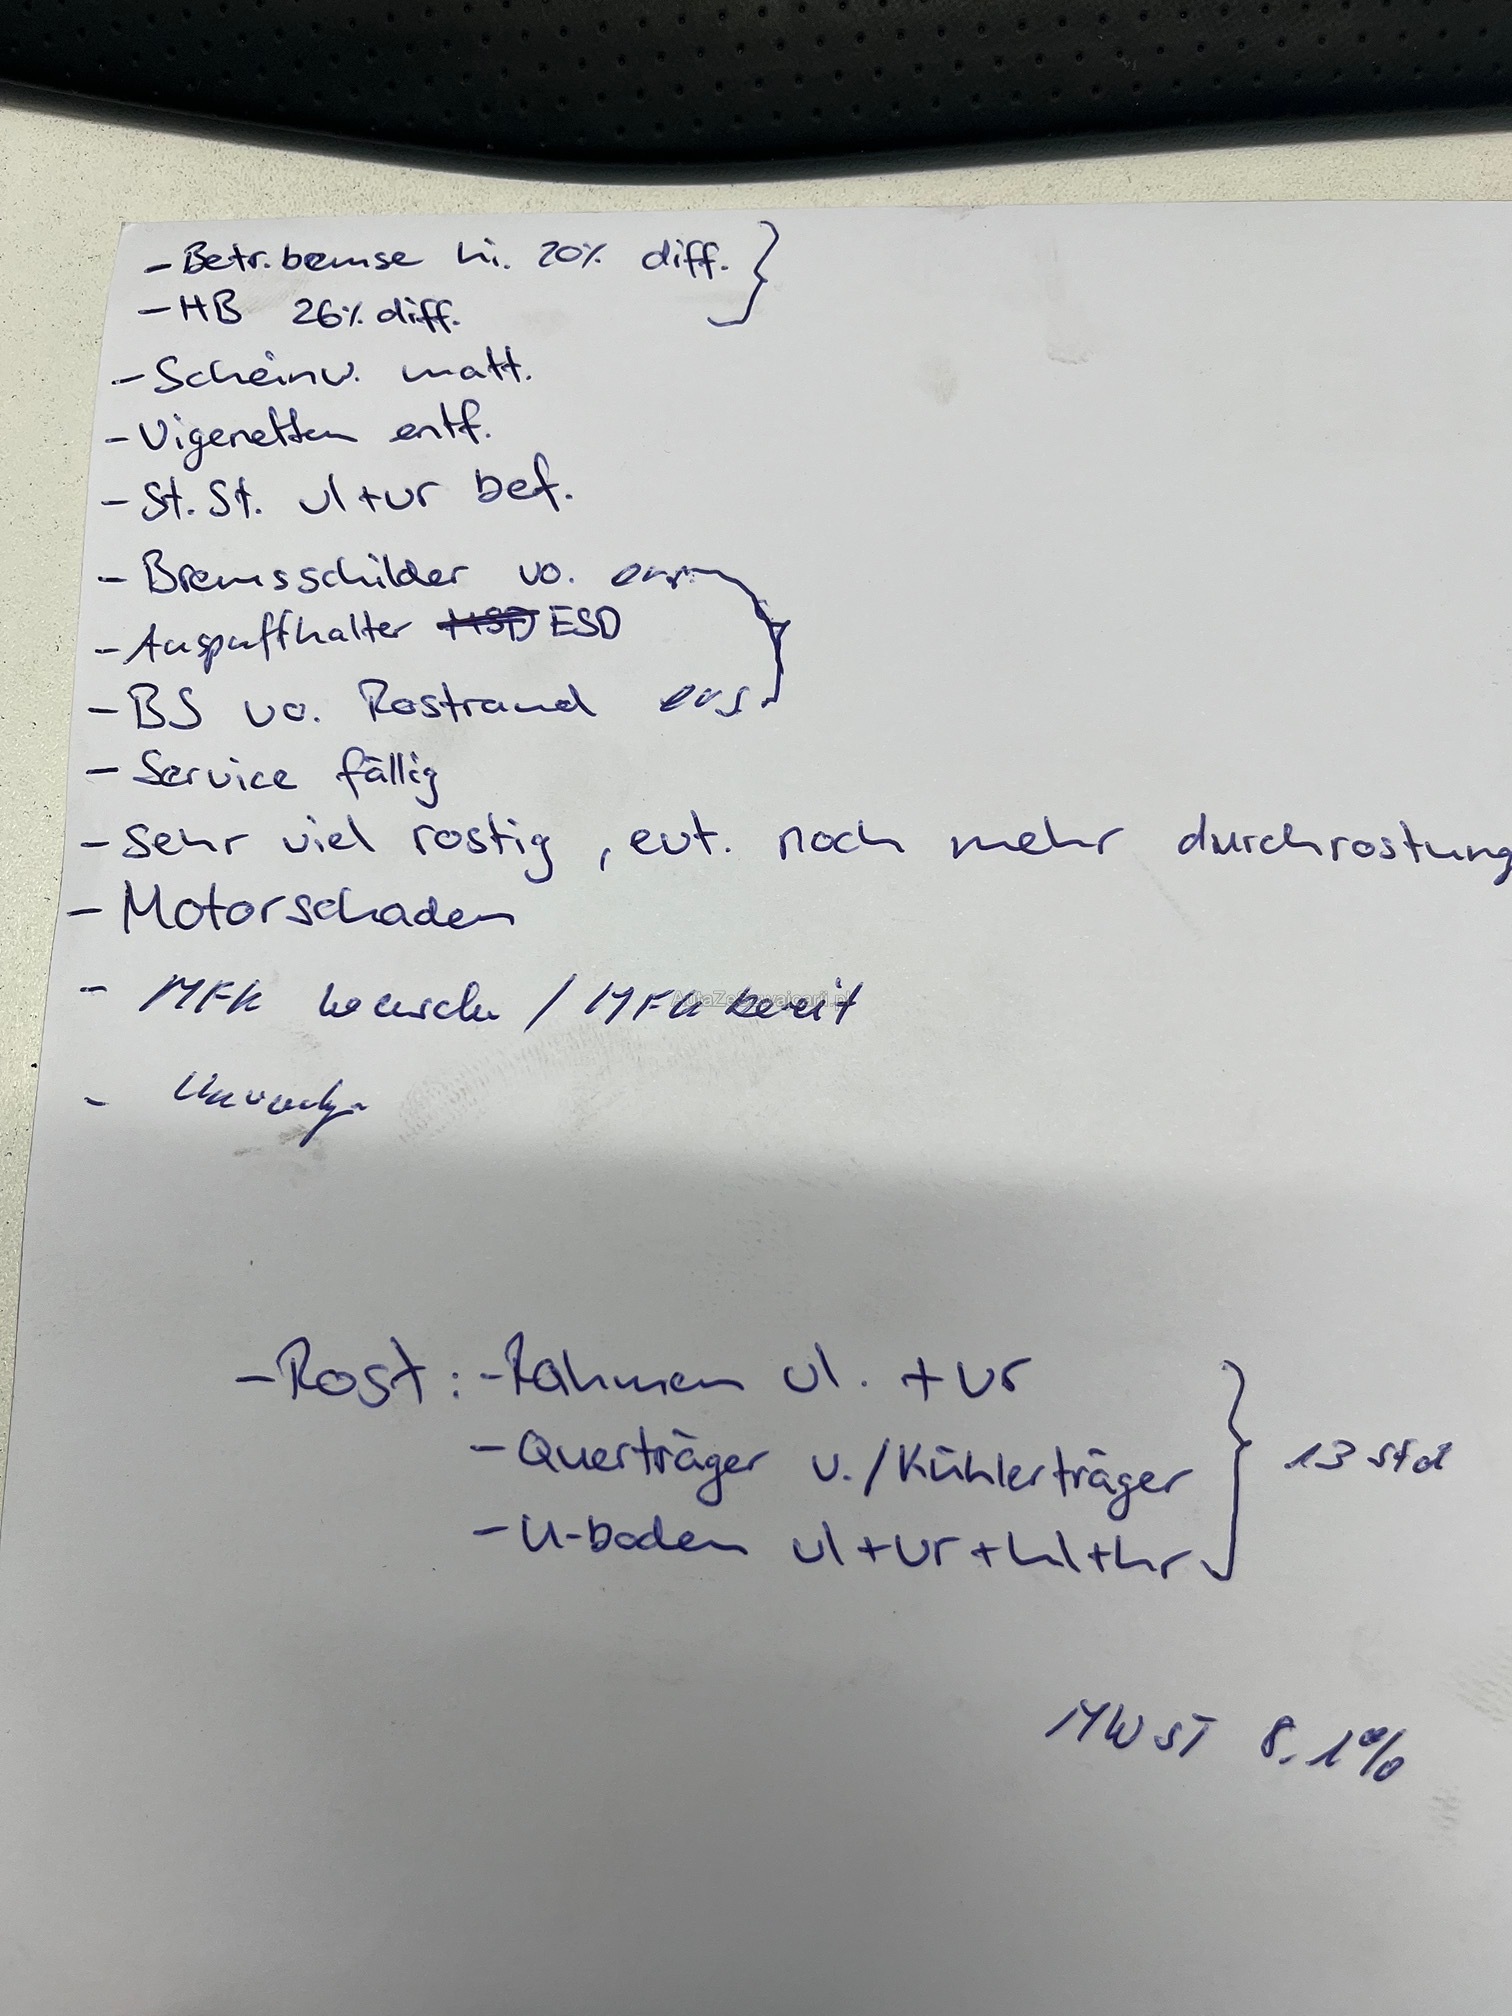 - Betr. bemse hi. 20% diff.
- HB 26% diff.
- Scheinw. matt.
- Vigenetten entf.
- St. St. vl + vr bef.
- Bremsschilder vo.
- Auspuffhalter ESD
- BS vo. Rostrand ers.
- Service fällig
- Sehr viel rostig, evt. noch mehr durchrostung
- Motorschaden
- MFK / MFK bereit
AutaZeSzwajcarii.pl
- Rost: - Rahmen vl. + vr
- Querträger v. / Kühlerträger
- U-boden vl + vr + hl + hr
13 Std
MWST 8.1%